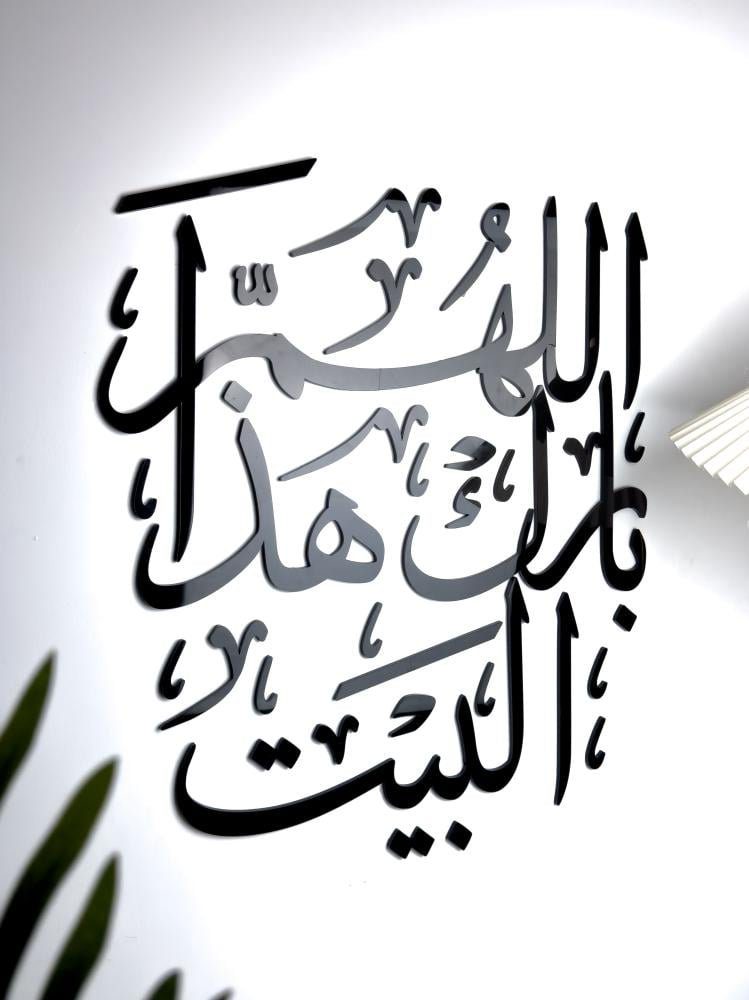 اللهُمّ
بارِكْ هذا
البَيْت